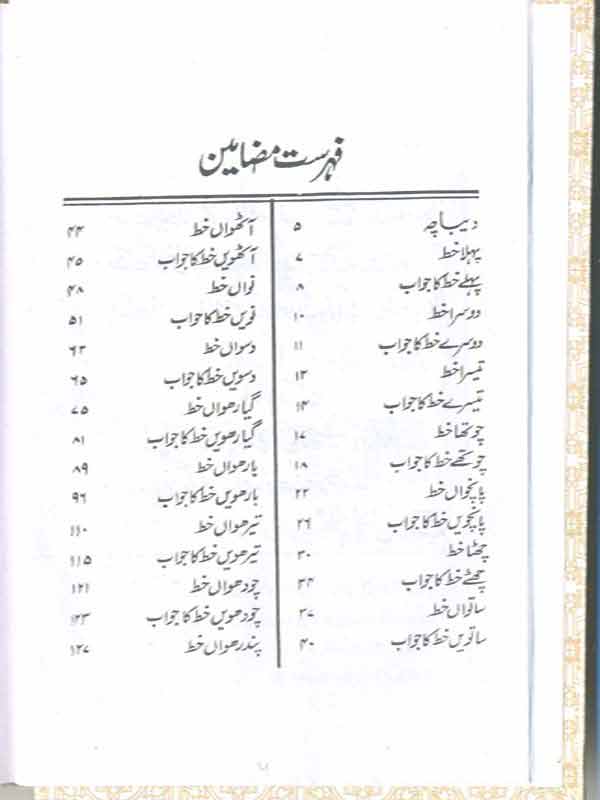 فہرست مضامین
دیباچہ ۵
پہلا خط ۷
پہلے خط کا جواب ۸
دوسرا خط ۱۰
دوسرے خط کا جواب ۱۱
تیسرا خط ۱۳
تیسرے خط کا جواب ۱۴
چوتھا خط ۱۷
چوتھے خط کا جواب ۱۸
پانچواں خط ۲۲
پانچویں خط کا جواب ۲۶
چھٹا خط ۳۰
چھٹے خط کا جواب ۳۴
ساتواں خط ۳۷
ساتویں خط کا جواب ۴۰
آٹھواں خط ۴۴
آٹھویں خط کا جواب ۴۵
نواں خط ۴۸
نویں خط کا جواب ۵۱
دسواں خط ۶۳
دسویں خط کا جواب ۶۵
گیارھواں خط ۷۵
گیارھویں خط کا جواب ۸۱
بارھواں خط ۸۹
بارھویں خط کا جواب ۹۶
تیرھواں خط ۱۱۰
تیرھویں خط کا جواب ۱۱۵
چودھواں خط ۱۲۱
چودھویں خط کا جواب ۱۲۳
پندرھواں خط ۱۲۷